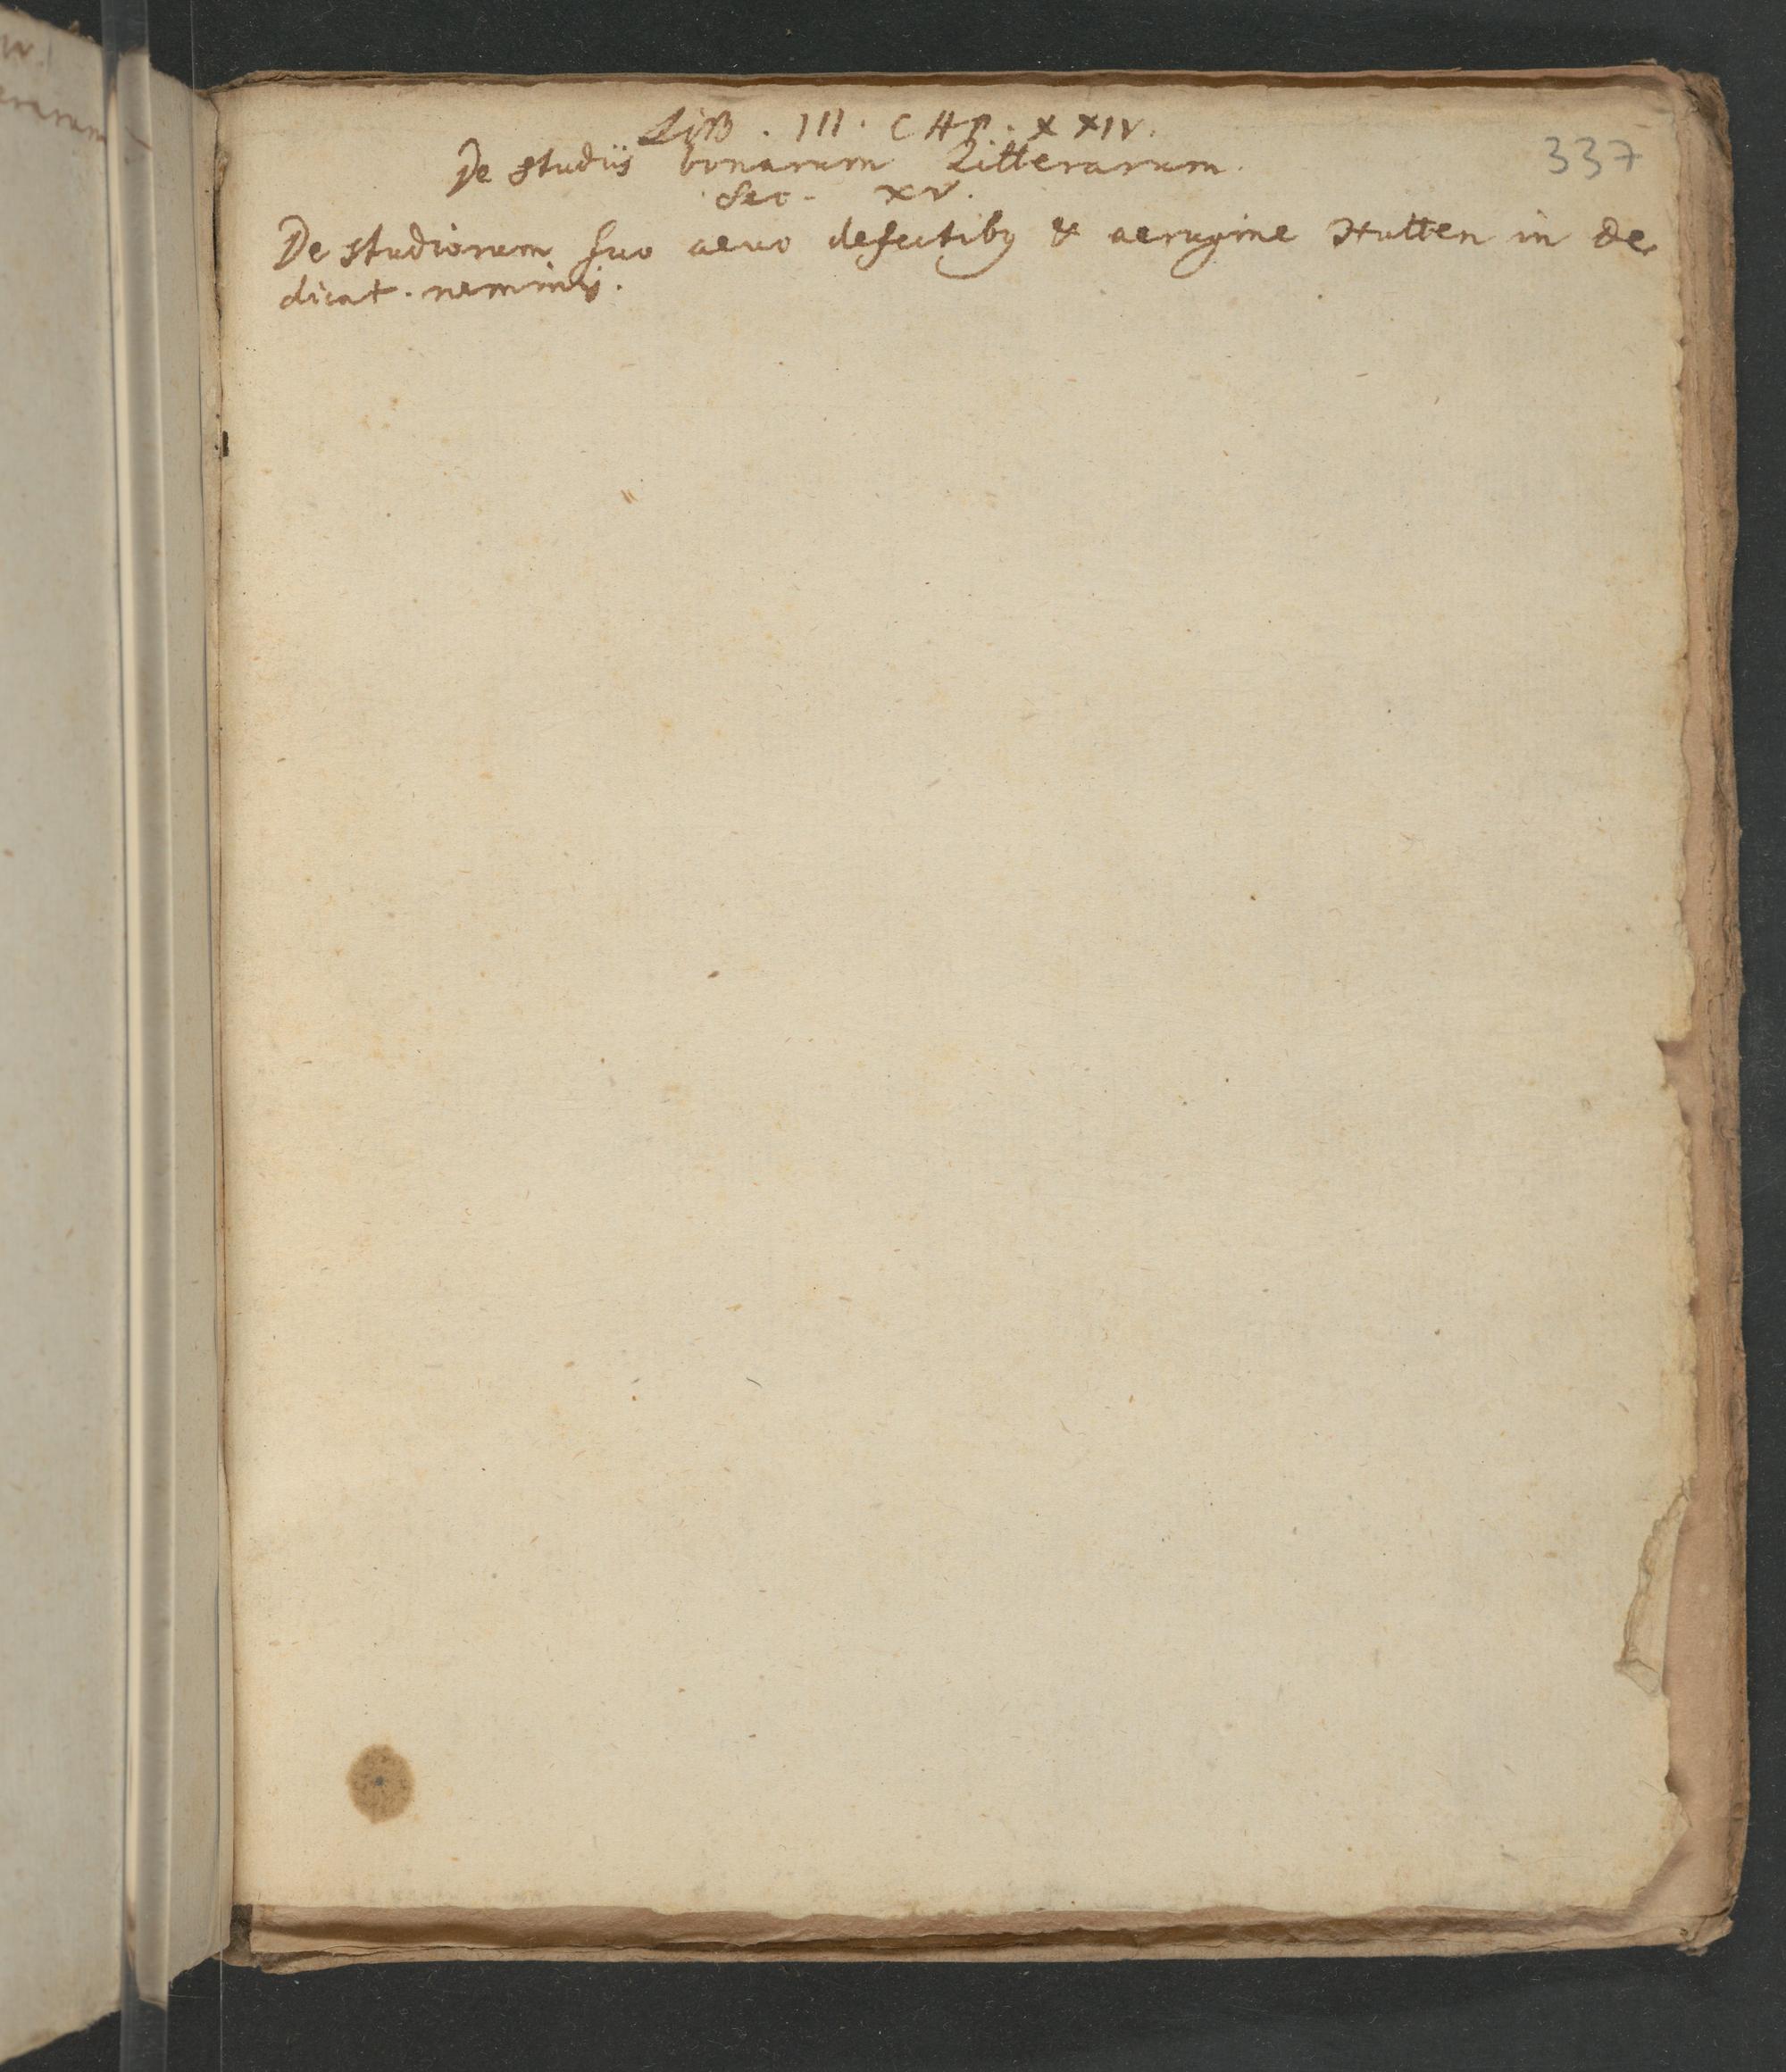 LIB. III. CAP. XXIV.
337
De studiis bonarum Litterarum.
Sec. XV.
De studiorum suo aeuo defectibꝰ & aerugine Hutten in de
dicat. neminis.